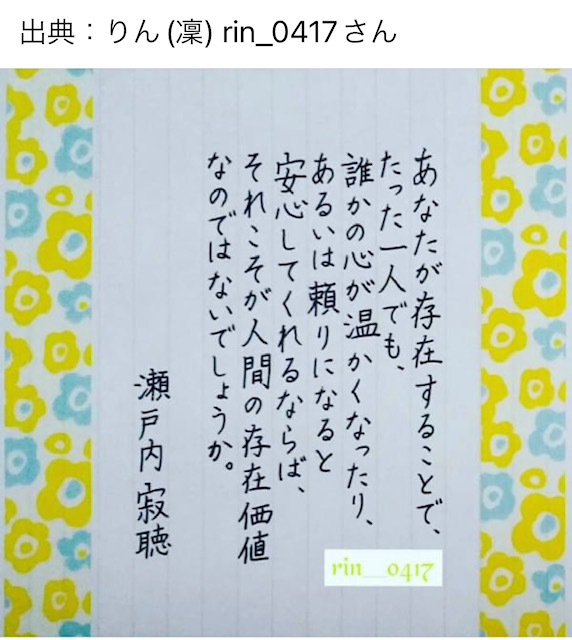 出典：りん(凜) rin_0417さん
あなたが存在することで、
たった一人でも、
誰かの心が温かくなったり、
あるいは頼りになると
安心してくれるならば、
それこそが人間の存在価値
なのではないでしょうか。
瀬戸内寂聴
rin_0417